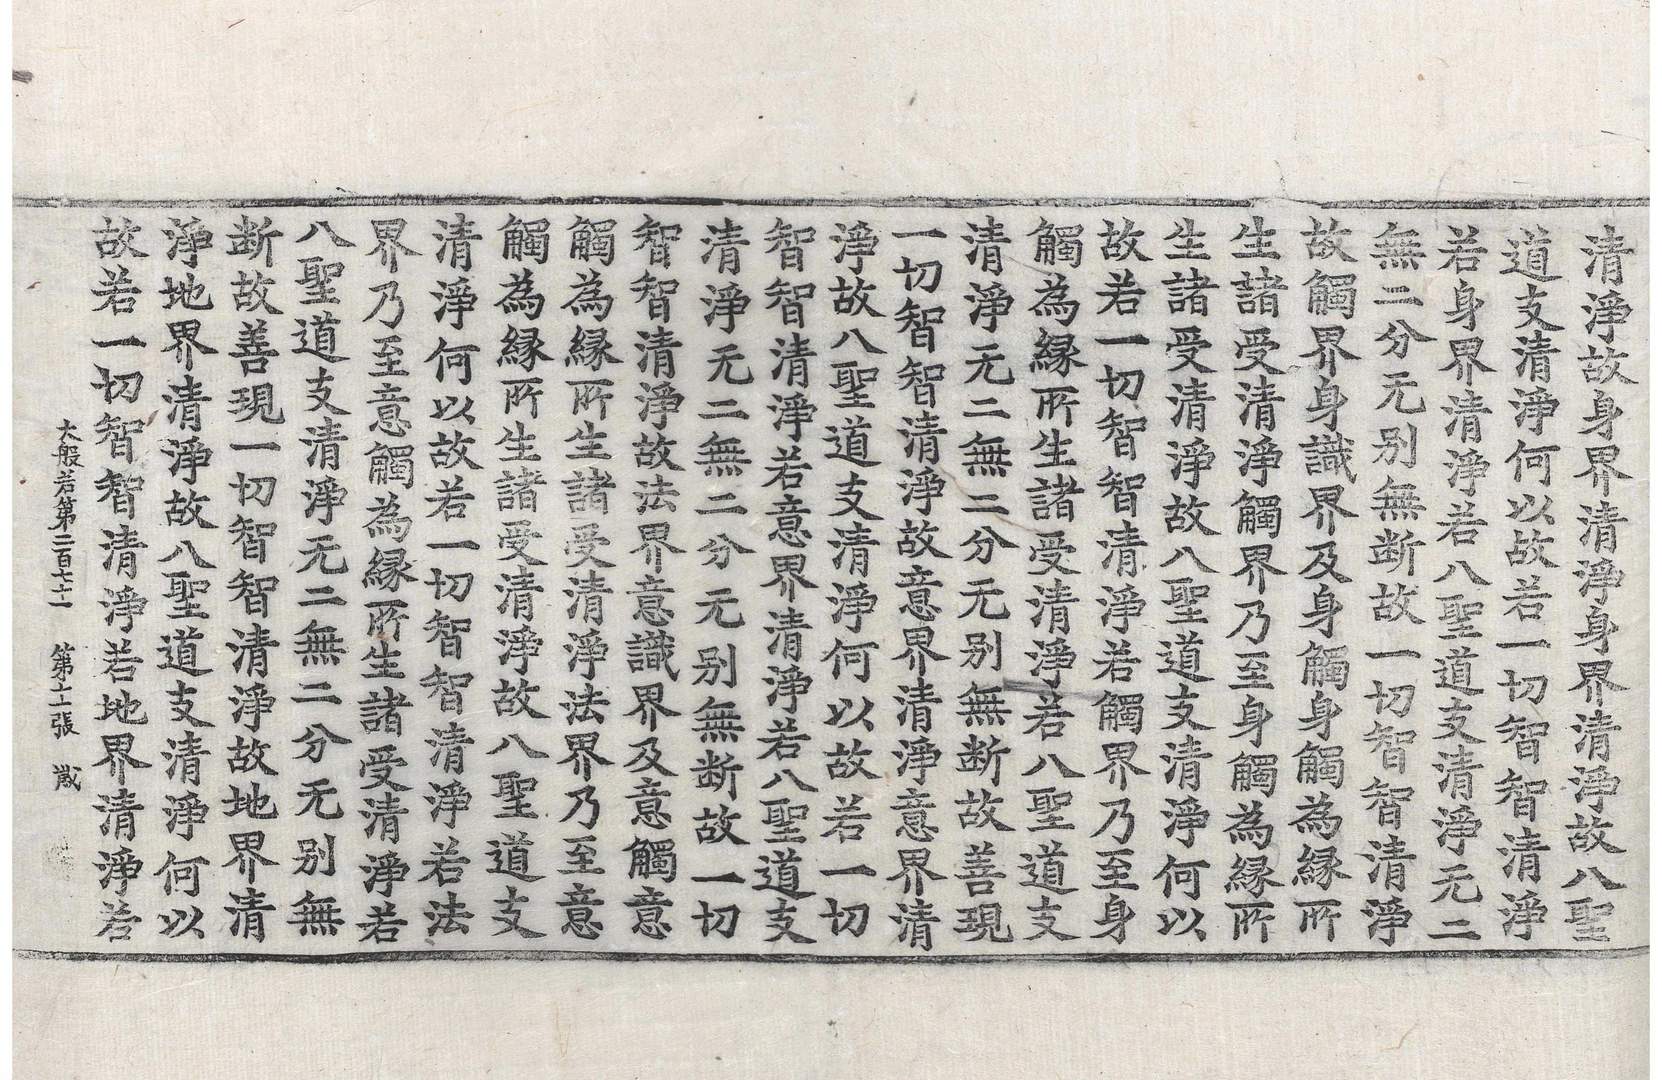 清淨故身界清淨身界清淨故八聖
道支清淨何以故若一切智智清淨
若身界清淨若八聖道支清淨无二
無二分无别無断故一切智智清淨
故觸界身識界及身觸身觸為縁所
生諸受清淨觸界乃至身觸為縁所
生諸受清淨故八聖道支清淨何以
故若一切智智清淨若觸界乃至身
觸為縁所生諸受清淨若八聖道支
清淨无二無二分无别無断故善現
一切智智清淨故意界清淨意界清
淨故八聖道支清淨何以故若一切
智智清淨若意界清淨若八聖道支
清淨无二無二分无别無断故一切
智智清淨故法界意識界及意觸意
觸為縁所生諸受清淨法界乃至意
觸為縁所生諸受清淨故八聖道支
清淨何以故若一切智智清淨若法
界乃至意觸為縁所生諸受清淨若
八聖道支清淨无二無二分无别無
断故善現一切智智清淨故地界清
淨地界清淨故八聖道支清淨何以
故若一切智智清淨若地界清淨若
大般若第二百七十一 第十一張 歲